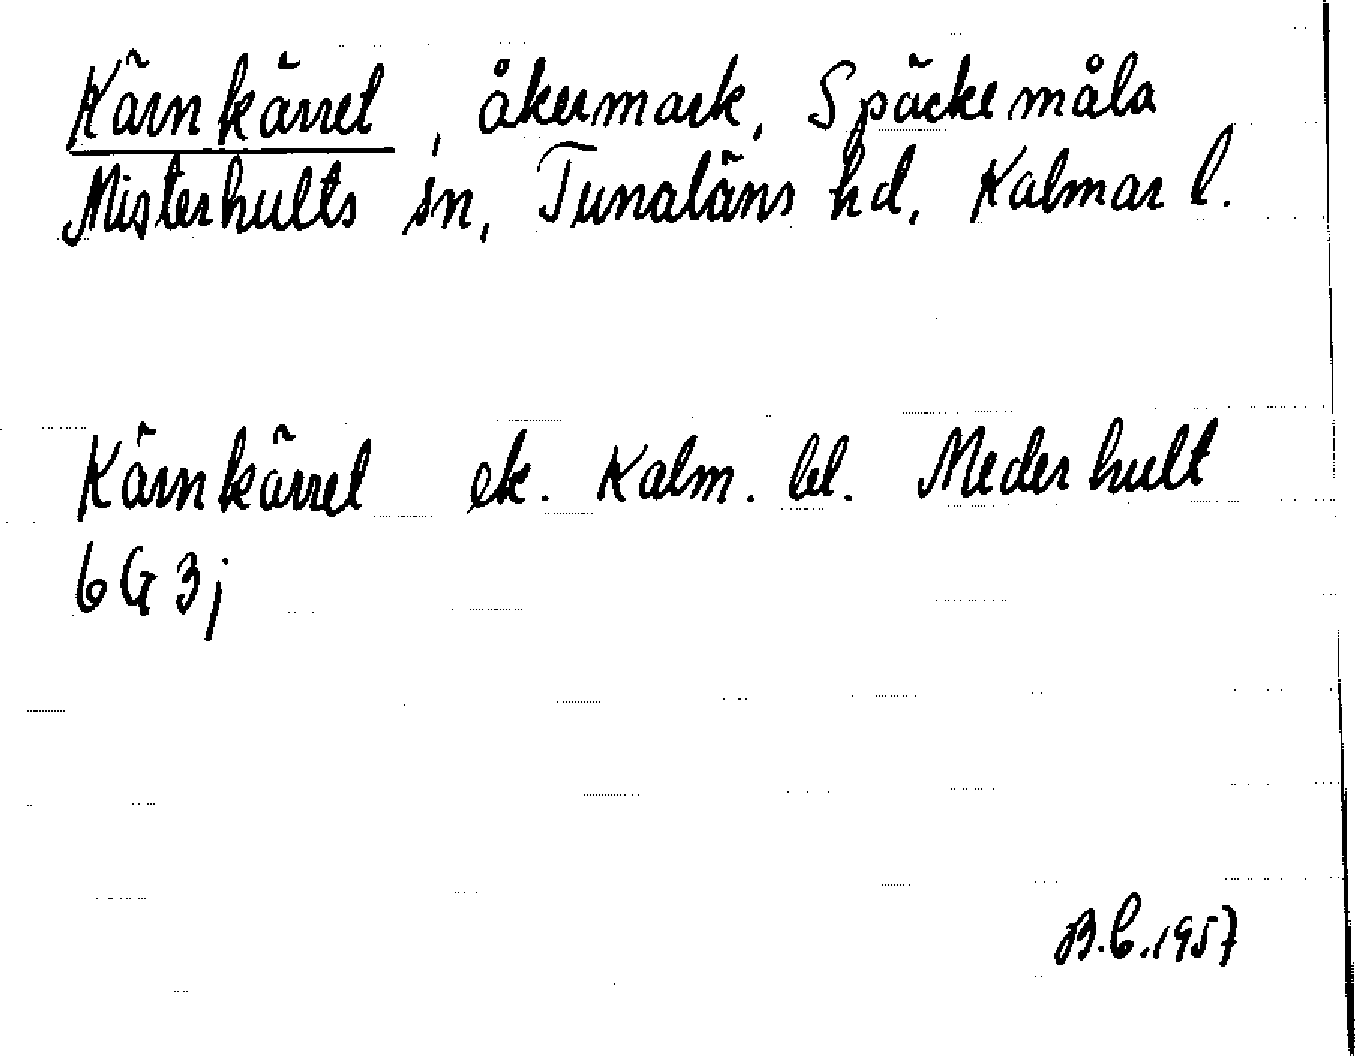 Kärnkärret, åkermark, Späckemåla
Misterhults sn, Tunaläns hd, Kalmar l.
Kärnkärret ek. Kalm. bl. Mederhult
6G 3j
B.C. 1957